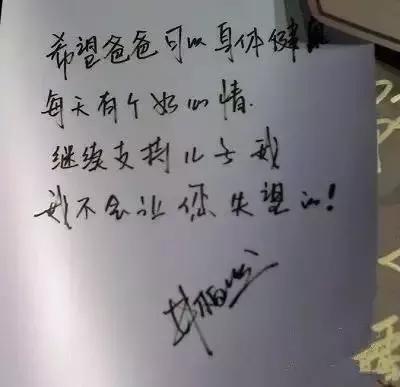 希望爸爸可以身体健康
每天有个好心情.
继续支持儿子我
我不会让您失望的!